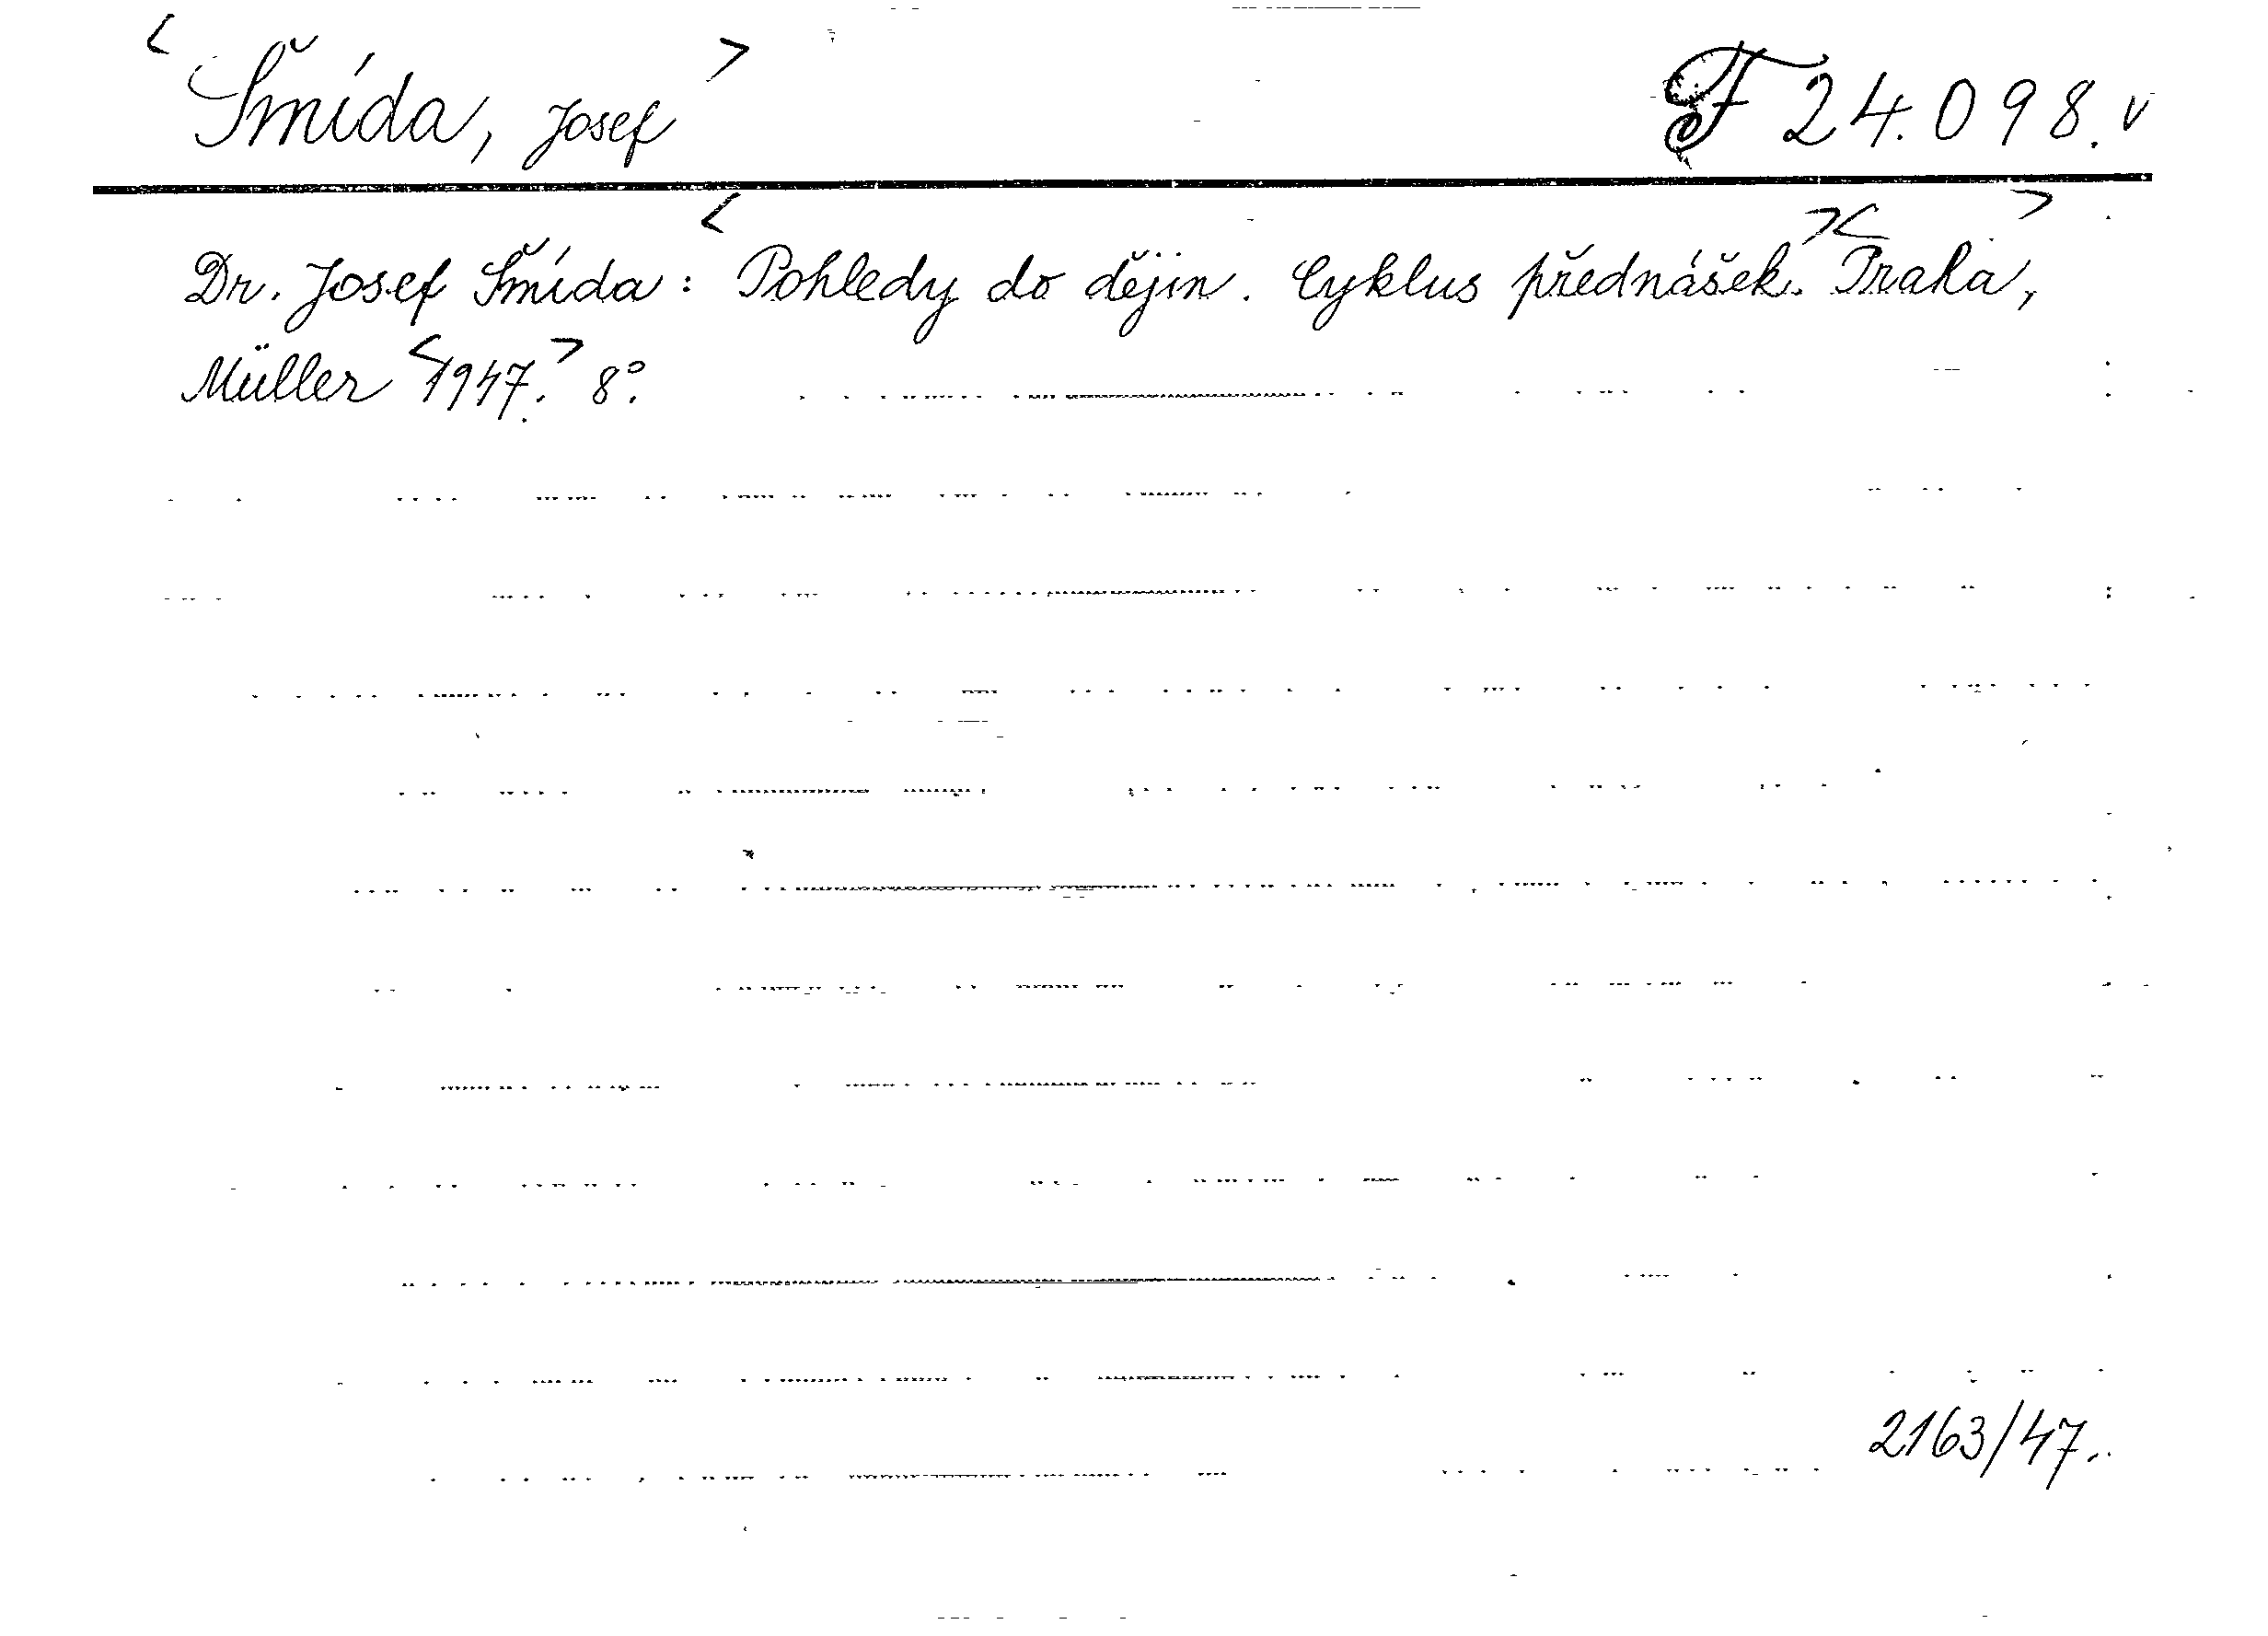 <Šmída, Josef> F 24.098. v
Dr. Josef Šmída: <Pohledy do dějin. Cyklus přednášek.> <Praha,>
Müller <1947.> 8°.
2163/47.